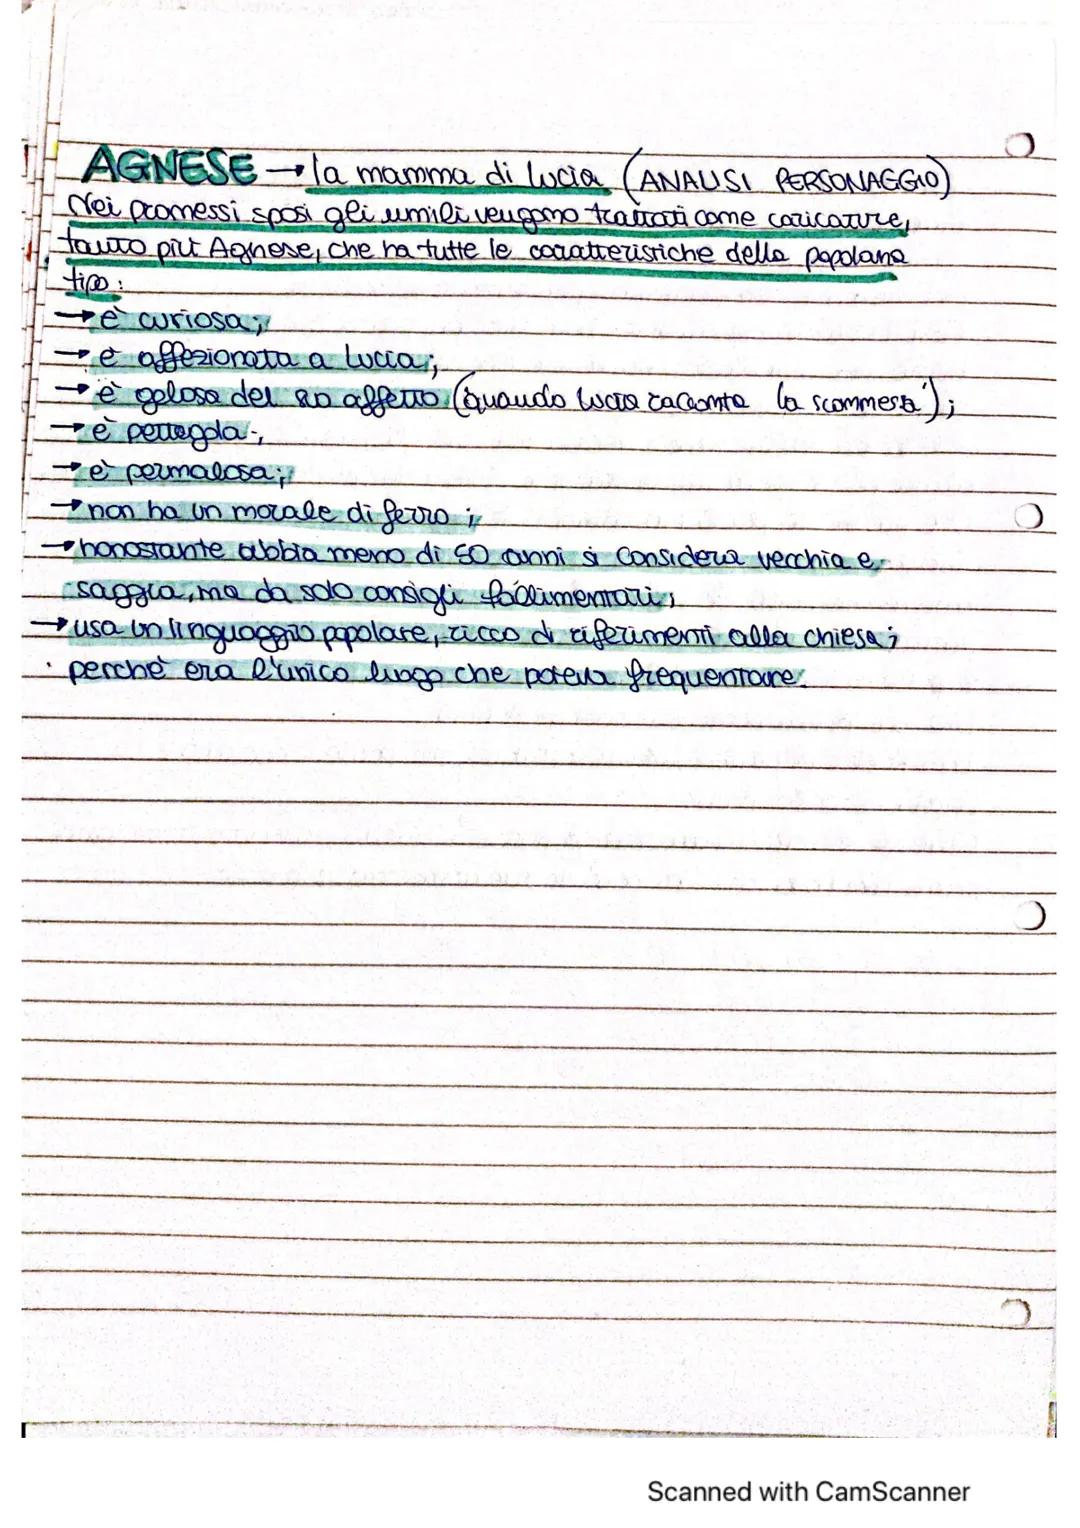 AGNESE → la mamma di Lucia (ANALISI PERSONAGGIO)
Nei promessi sposi gli umili vengono trattati come caricature,
tanto più Agnese, che ha tutte le caratteristiche della popolana
tipo:
→ è curiosa;
→ è affezionata a Lucia;
→ è gelosa del suo affetto (quando Lucia racconta la scommessa);
→ è pettegola;
→ è permalosa;
→ non ha un morale di ferro;
→ nonostante abbia meno di 50 anni si considera vecchia e
saggia, ma da solo consigli fallimentari;
→ usa un linguaggio popolare, ricco di riferimenti alla chiesa;
perché era l'unico luogo che poteva frequentare.
Scanned with CamScanner